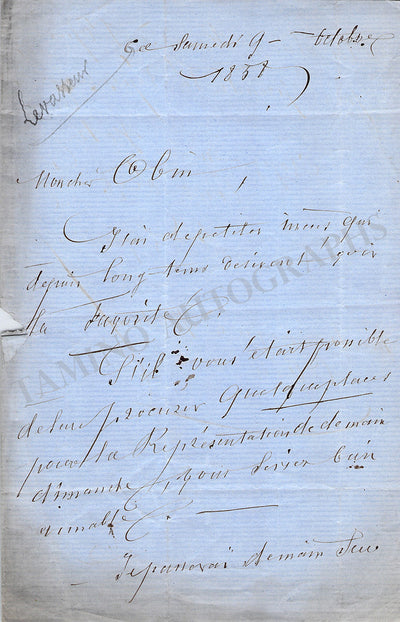 Ce Samedi 9 - octobre
1858
Levasseur
Mon cher Obin,
J'ai de petites nièces qui
depuis long-tems désirent voir
la Favorite.
S'il vous était possible
de leur procurer quelques places
pour la Représentation de demain
dimanche, vous seriez bien
aimable.
Je passerai demain
TAMINO AUTOGRAPHS